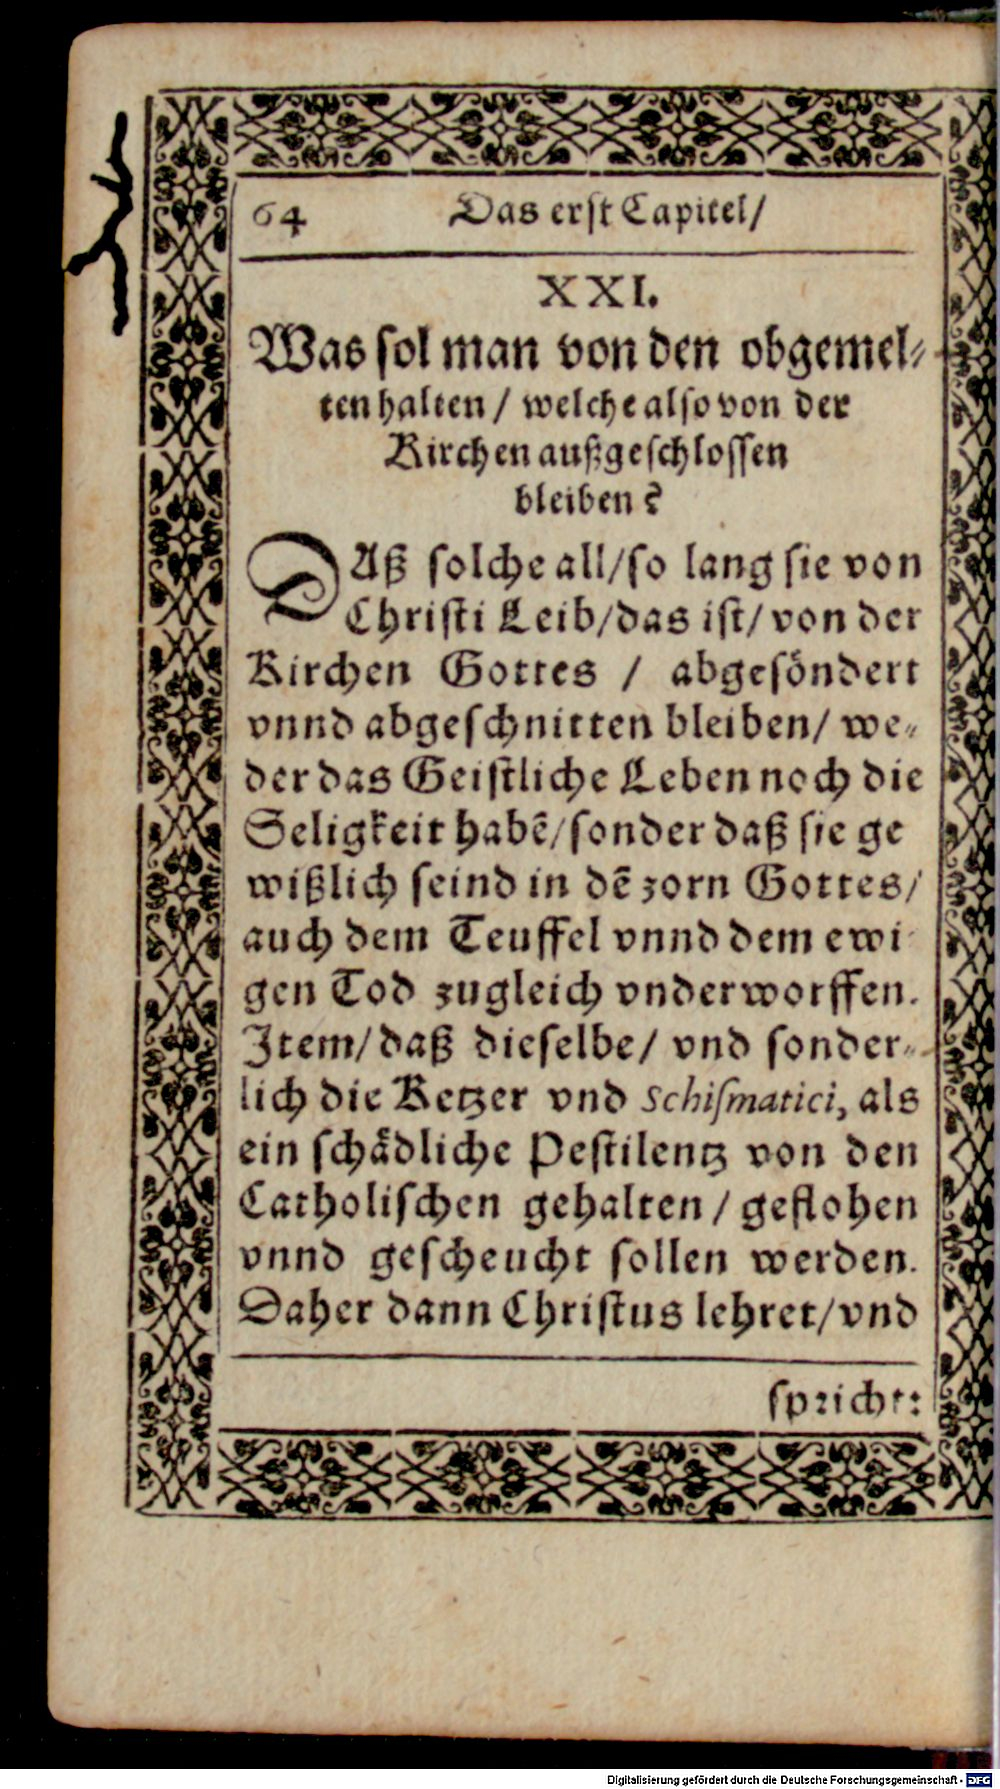 64 Das erst Capitel/
XXI.
Was sol man von den obgemel⸗
ten halten / welche also von der
Kirchen außgeschlossen
bleiben?
DAß solche all/so lang sie von
Christi Leib/das ist/von der
Kirchen Gottes / abgesöndert
vnnd abgeschnitten bleiben/ we⸗
der das Geistliche Leben noch die
Seligkeit habẽ/sonder daß sie ge
wißlich seind in dẽ zorn Gottes/
auch dem Teuffel vnnd dem ewi⸗
gen Tod zugleich vnderworffen.
Item/daß dieselbe/ vnd sonder⸗
lich die Ketzer vnd Schismatici, als
ein schädliche Pestilentz von den
Catholischen gehalten / geflohen
vnnd gescheucht sollen werden.
Daher dann Christus lehret/vnd
spricht:
Digitalisierung gefördert durch die Deutsche Forschungsgemeinschaft - DFG